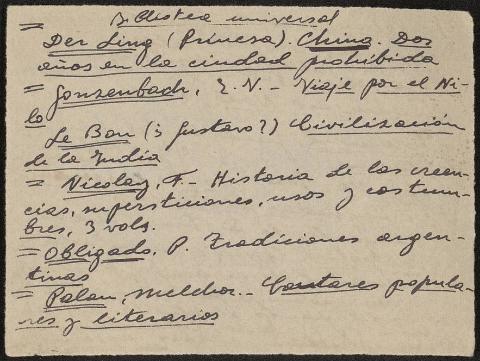 Biblioteca universal
= Der Ling (Princesa). China. Dos
años en la ciudad prohibida
= Gonzenbach, E. V.- Viaje por el Ni-
lo
Le Bon (¿Gustavo?) Civilización
de la India
= Nicolay, F.- Historia de las creen-
cias, supersticiones, usos y costum-
bres, 3 vols.
= Obligado, P. Tradiciones argen-
tinas
= Palau, Melchor.- Cantares popula-
res y literarios